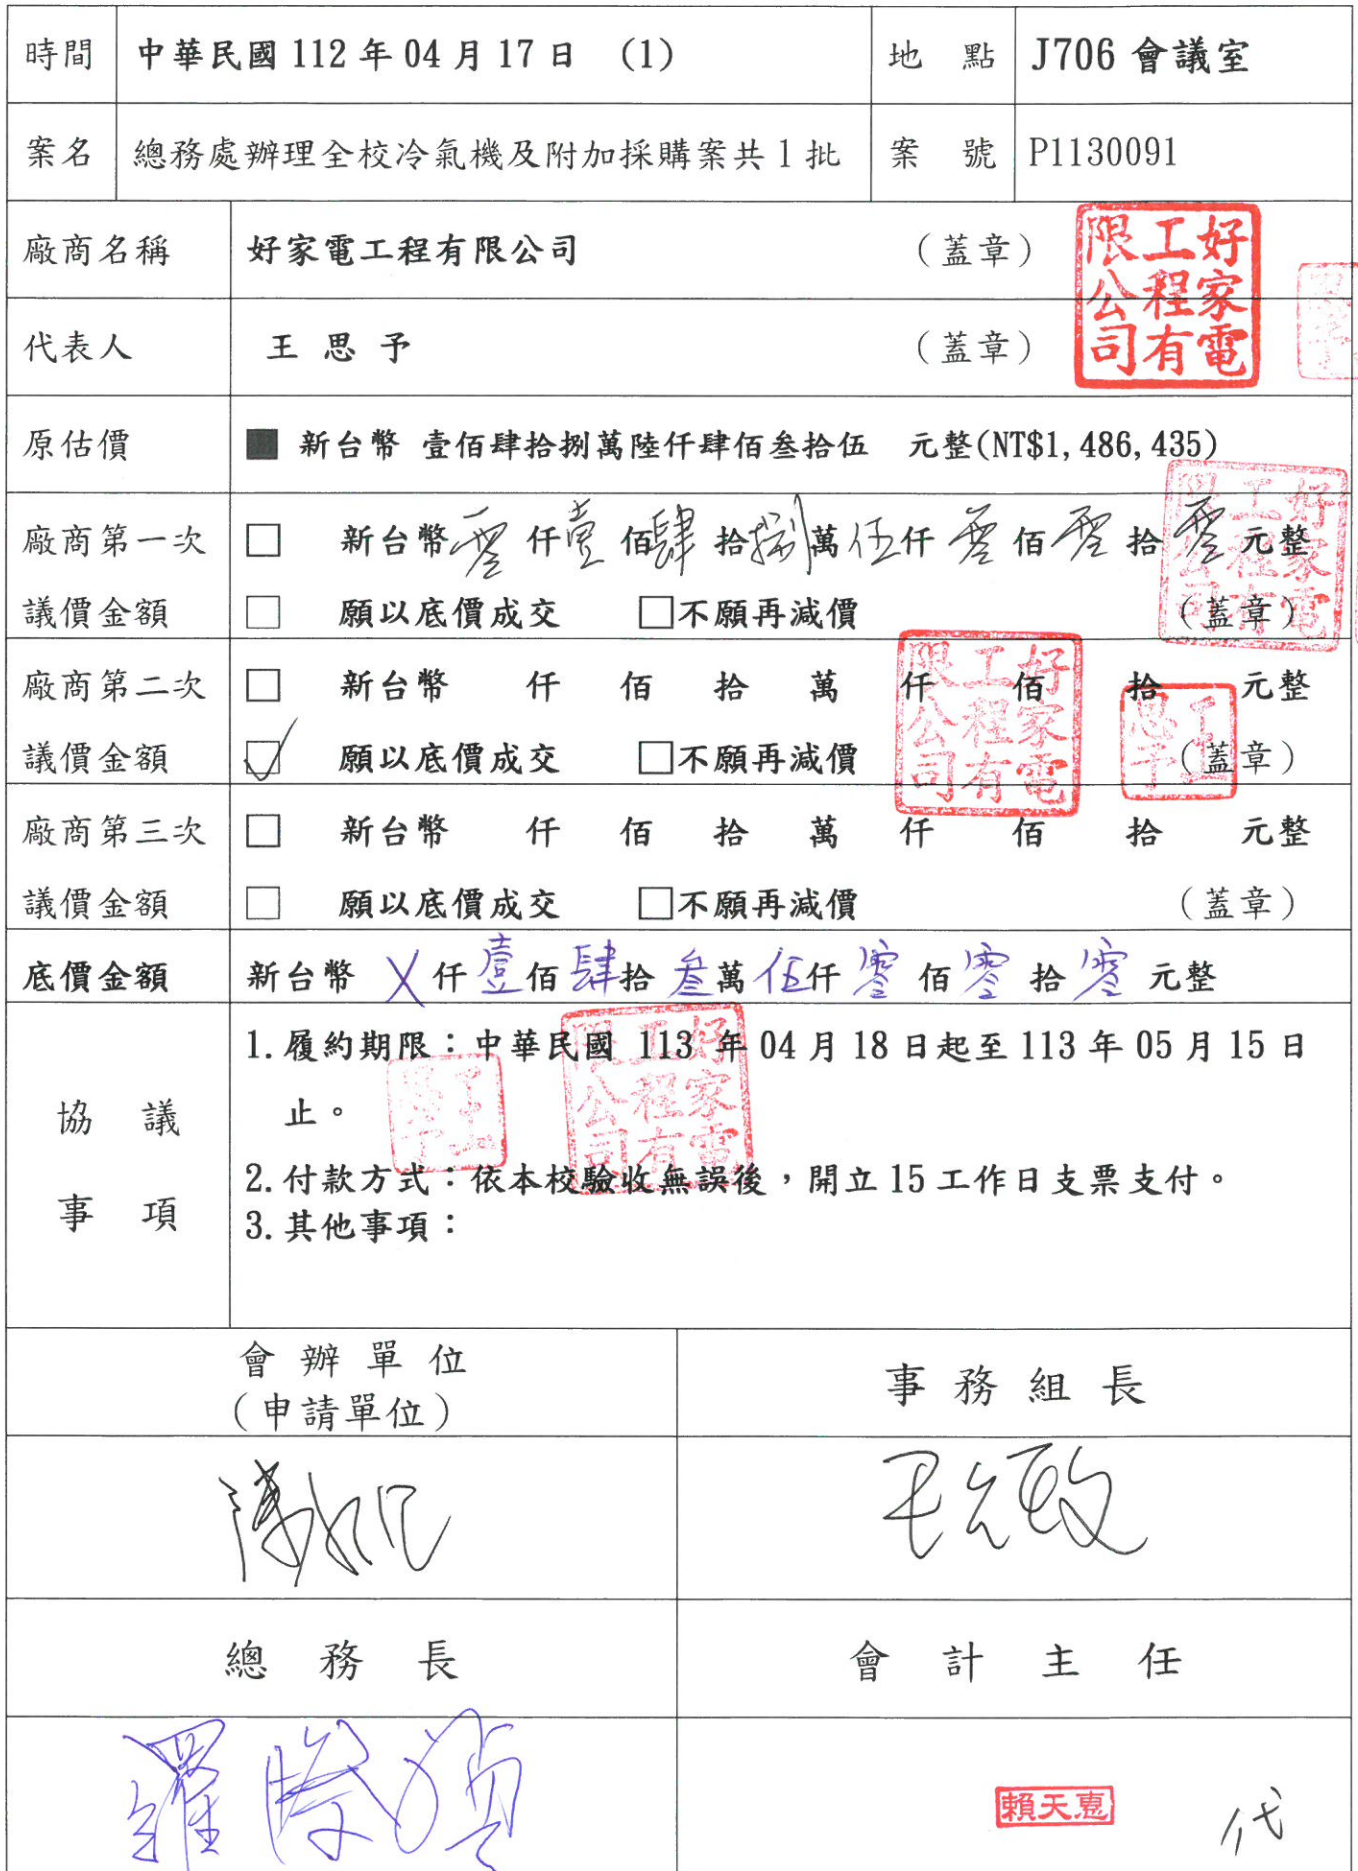 時間 中華民國 112 年 04 月 17 日 (1) 地點 J706 會議室
案名 總務處辦理全校冷氣機及附加採購案共 1 批 案號 P1130091
廠商名稱 好家電工程有限公司 (蓋章)
好家電工程有限公司
代表人 王思予 (蓋章)
原估價 ■ 新台幣 壹佰肆拾捌萬陸仟肆佰叁拾伍 元整(NT$1,486,435)
廠商第一次 □ 新台幣 零 仟 壹 佰 肆 拾 捌 萬 伍 仟 零 佰 零 拾 零 元整
議價金額 □ 願以底價成交 □不願再減價 (蓋章)
好家電工程有限公司
廠商第二次 □ 新台幣 仟 佰 拾 萬 仟 佰 拾 元整
議價金額 ☑ 願以底價成交 □不願再減價 (蓋章)
好家電工程有限公司
王思予
廠商第三次 □ 新台幣 仟 佰 拾 萬 仟 佰 拾 元整
議價金額 □ 願以底價成交 □不願再減價 (蓋章)
底價金額 新台幣 X 仟 壹 佰 肆 拾 叁 萬 伍 仟 零 佰 零 拾 零 元整
協議事項
1.履約期限：中華民國 113 年 04 月 18 日起至 113 年 05 月 15 日
止。
王思予
好家電工程有限公司
2.付款方式：依本校驗收無誤後，開立 15 工作日支票支付。
3.其他事項：
會辦單位 事務組長
(申請單位)
總務長 會計主任
賴天惠 代